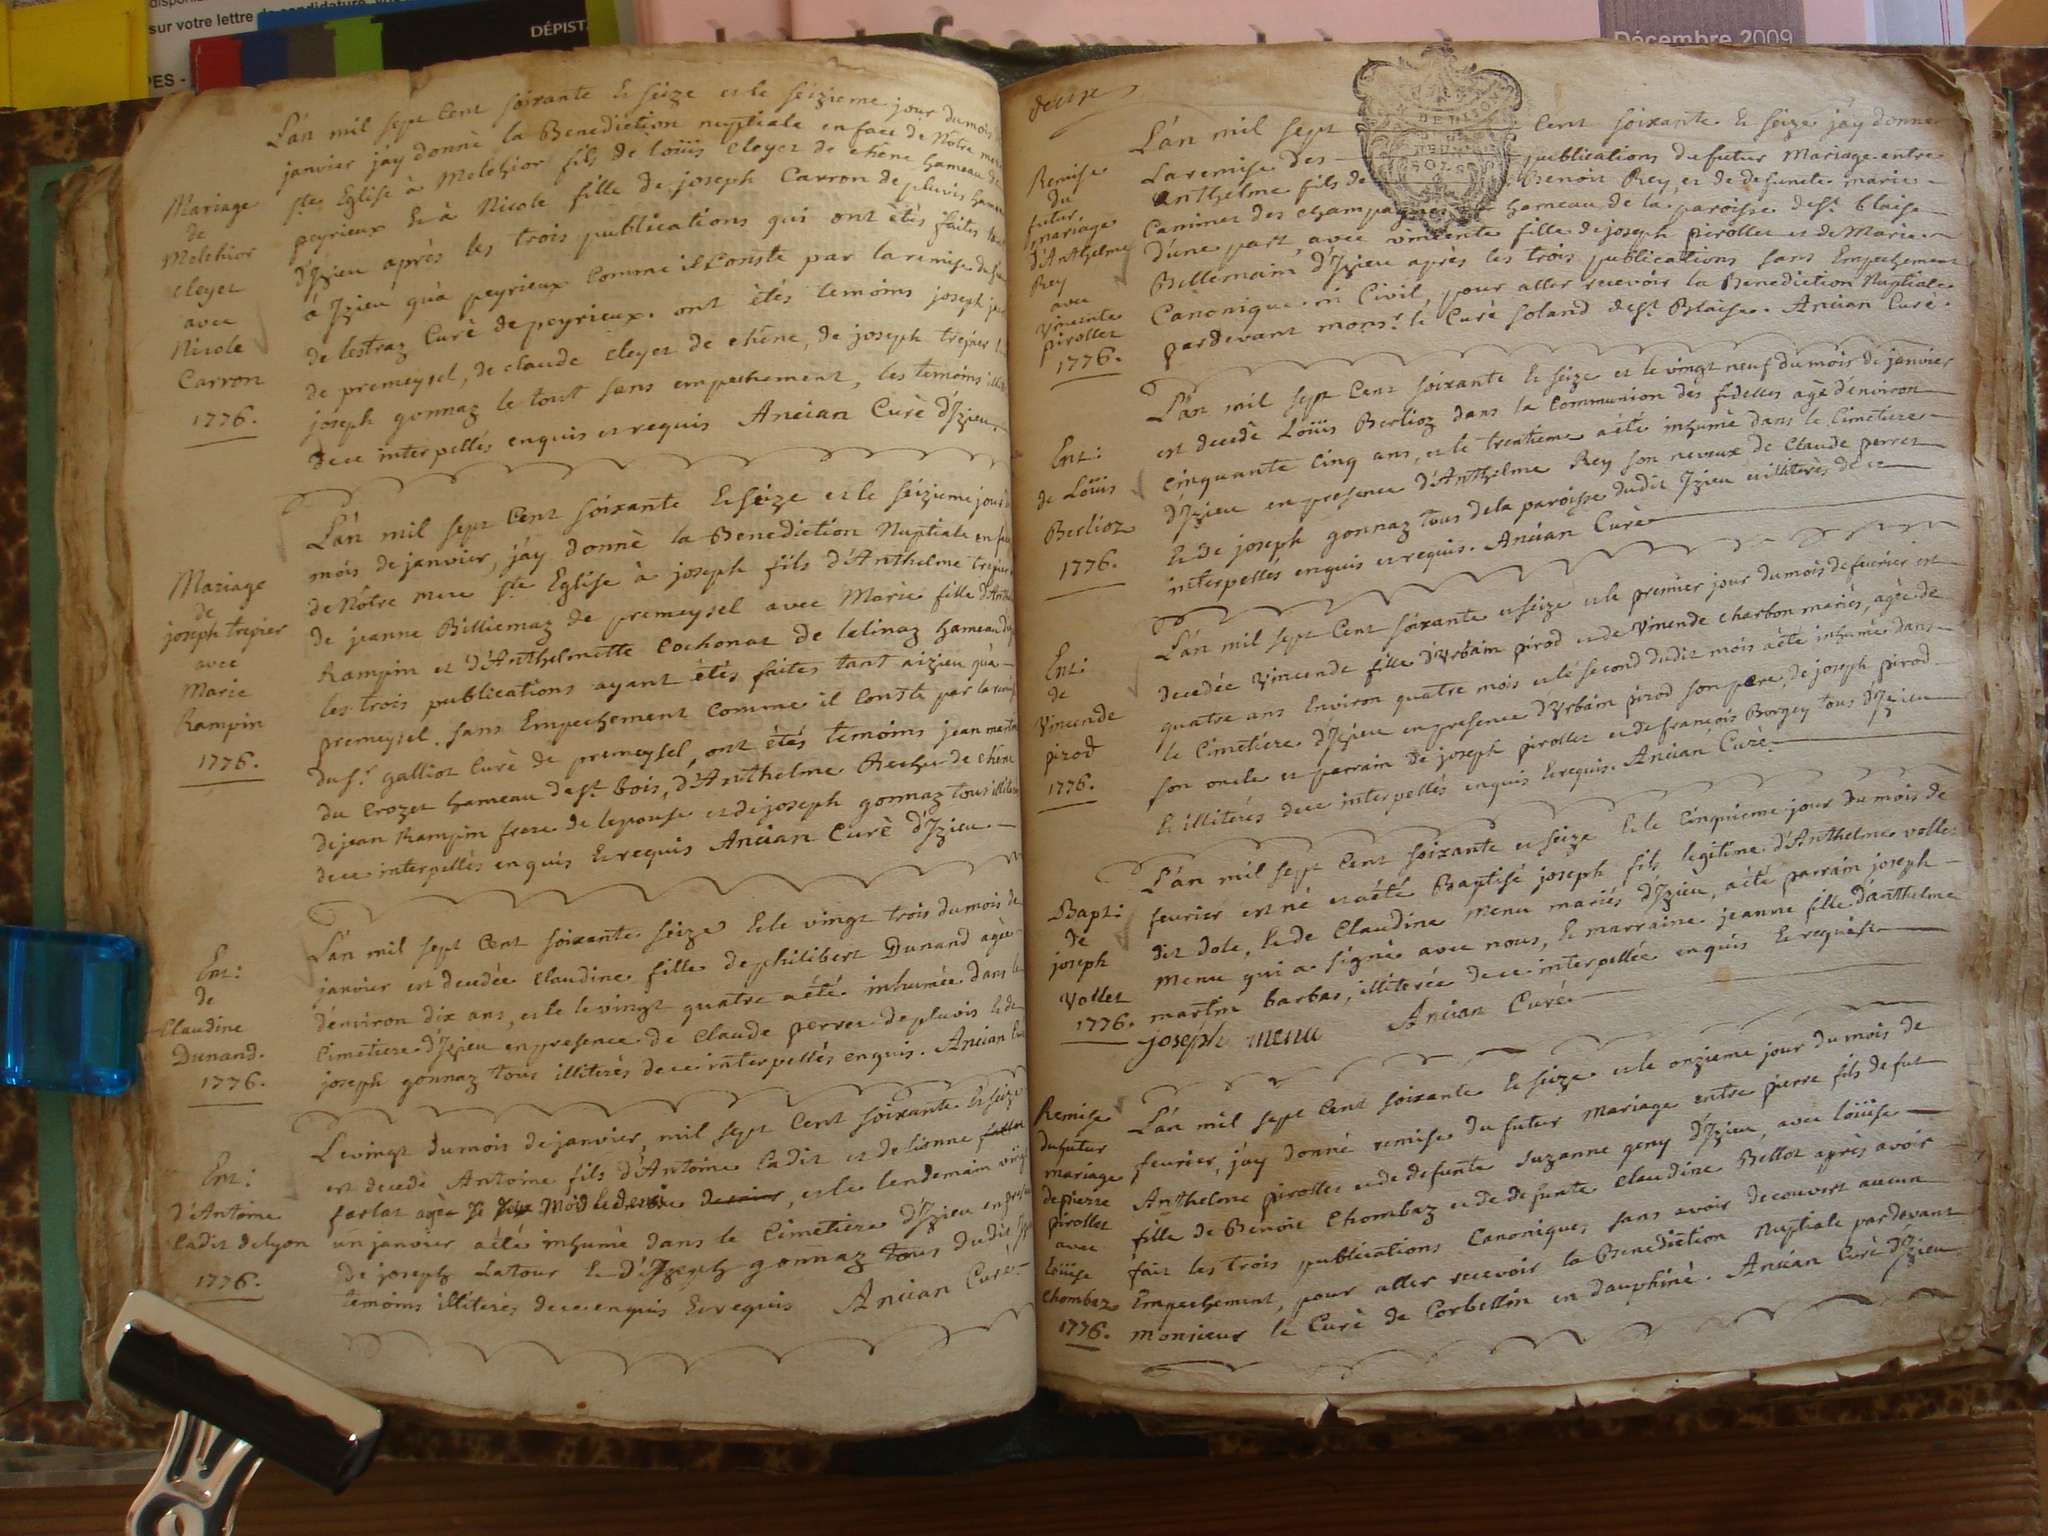 sur votre lettre de candidature
DÉPIST
PES -
Décembre 2009
L'an mil sept cent soixante et seize et le seizieme jour du mois
janvier j'ay donnè la Benediction nuptiale en face de Notre mere
Ste Eglise à Melchior fils de loüis cleyet de chêne hameau de
peyrieux et à Nicole fille de joseph Carron de pluvis hameau
d'Izieu après les trois publications qui ont ètés faites tant
à Izieu qu'a peyrieux comme il conste par la remise du sieur
de lestraz Curè de peyrieux. ont ètés temoins joseph
de premeysel, de claude cleyet de chêne, de joseph trepier
joseph gonnaz le tout sans empechement, les temoins
de ce interpellés enquis et requis Ancian Curè d'Izieu
Mariage
de
Melchior
cleyet
avec
Nicole
Carron
1776.
L'an mil sept cent soixante et seize et le seizieme jour
mois de janvier, j'ay donnè la Benediction Nuptiale en face
de Notre mere Ste Eglise à joseph fils d'Anthelme trepier
de jeanne Billiemaz de premeysel avec Marie fille d'Anthelme
Rampin et d'Anthelmette Cochonat de lelinaz hameau
les trois publications ayant ètés faites tant a izieu qu'a
premeysel. sans Empechement comme il conste par la remise
du Sr. galliot Curè de premeysel, ont ètés temoins jean martin
du Crozet hameau de St. bois, d'Anthelme Recher de chêne
de jean Rampin frere de lepouse et de joseph gonnaz tous
de ce interpellés enquis et requis Ancian Curè d'Izieu.
Mariage
de
joseph trepier
avec
Marie
Rampin
1776.
L'an mil sept cent soixante seize et le vingt trois du mois de
janvier est decedée Claudine fille de philibert Dunand agèe
d'environ dix ans, et le vingt quatre a été inhumée dans le
Cimetiere d'Izieu en presence de Claude perret de pluvis et de
joseph gonnaz tous illiterés de ce interpellés enquis. Ancian
Ent:
de
Claudine
Dunand.
1776.
Le vingt du mois de janvier, mil sept cent soixante et seize
est decedé Antoine fils d'Antoine Cadit et de lionne
farlat agèe de deux mois et demi, et le lendemain vingt
un janvier a été inhumé dans le Cimetiere d'Izieu en
de joseph Latour et de joseph gonnaz tous dudit
temoins illiterés de ce enquis et requis Ancian Curè
Ent:
d'Antoine
Cadit de lyon
1776.
L'an mil sept cent soixante et seize j'ay donné
La remise des publications du futur Mariage entre
Anthelme fils de Benoit Rey, et de defuncte marie
Caminet des champagne hameau de la paroisse de St. Blaise
D'une part, avec vincente fille de joseph pirollet et de Marie
Billemain d'Izieu après les trois publications sans Empechement
Canonique ni Civil, pour aller recevoir la Benediction Nuptiale
par devant monsr. le Curè Soland de St. Blaise. Ancian Curè.
Remise
du
futur
mariage
d'Anthelme
Rey
avec
Vincente
pirollet
1776.
L'an mil sept cent soixante et seize et le vingt neuf du mois de janvier
est decedè Loüis Berlioz dans la communion des fidelles agè d'environ
cinquante cinq ans, et le trentieme a été inhumè dans le Cimetiere
d'Izieu en presence d'Anthelme Rey son neveux de Claude perret
et de joseph gonnaz tous de la paroisse dudit Izieu illiterés de ce
interpellés enquis et requis. Ancian Curè
Ent:
de Loüis
Berlioz
1776.
L'an mil sept cent soixante et seize et le premier jour du mois de fevrier est
decedée Vincende fille d'Urbain pirod et de Vincende charbon mariés, agée de
quatre ans Environ quatre mois et le second dudit mois a été inhumè dans
le Cimetiere d'Izieu en presence d'Urbain pirod son pere, de joseph pirod
son oncle et parrain de joseph pirollet et de françois Borgey tous d'Izieu
et illiterés de ce interpellés enquis et requis. Ancian Curè.
Ent:
de
Vincende
pirod
1776.
L'an mil sept cent soixante et seize et le Cinquieme jour du mois de
fevrier est né et a été Baptisé joseph fils legitime d'Anthelme vollet
dit dole, et de Claudine Menu mariés d'Izieu, a été parrain joseph
Menu qui a signè avec nous, et marraine jeanne fille d'anthelme
martin barbas, illiterée de ce interpellée enquis et requise
joseph menu Ancian Curè
Bapt:
de
joseph
Vollet
1776.
L'an mil sept cent soixante et seize et le onzieme jour du mois de
fevrier, j'ay donné remise du futur Mariage entre pierre fils de fut
Anthelme pirollet et de defunte Suzanne geny d'Izieu, avec loüise
fille de Benoit Chombaz et de defunte Claudine Bellot après avoir
fait les trois publications Canoniques sans avoir decouvert aucun
Empechement, pour aller recevoir la Benediction Nuptiale par devant
monsieur le Curè de Corbellin en dauphiné. Ancian Curè d'Izieu
Remise
du futur
mariage
de pierre
pirollet
avec
loüise
Chombaz
1776.